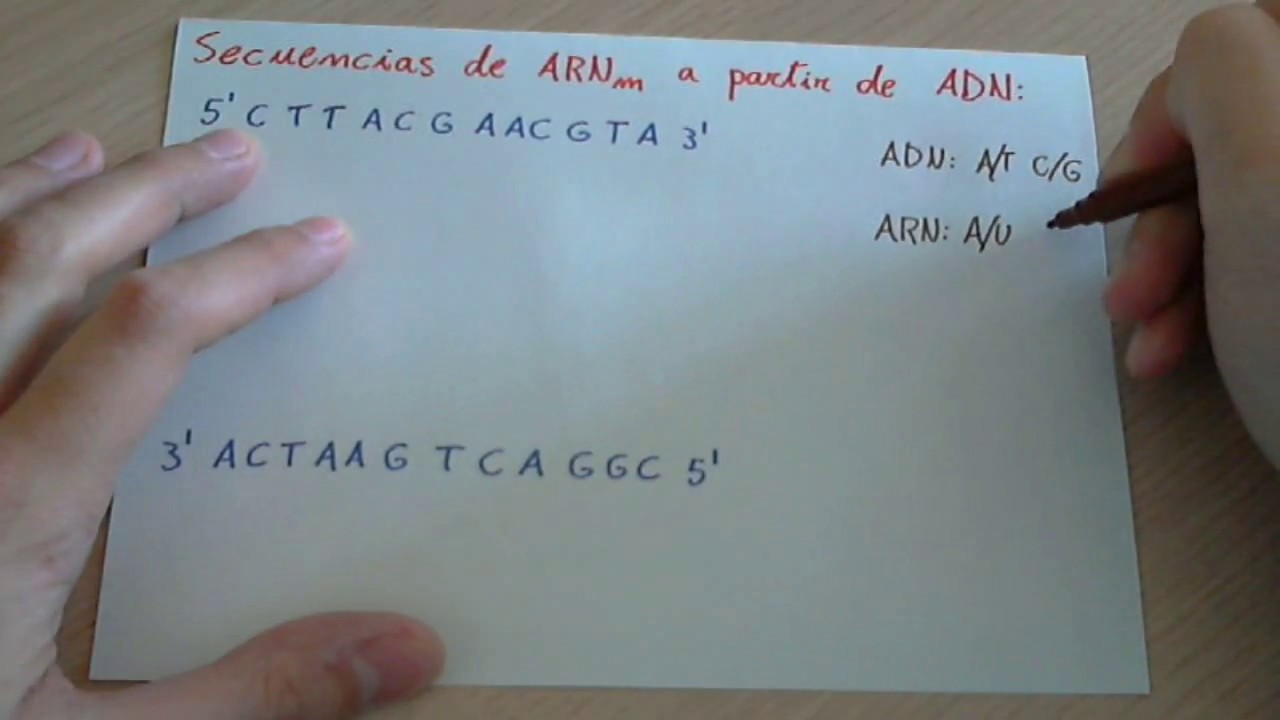 Secuencias de ARNm a partir de ADN:
5' C T T A C G A A C G T A 3'
ADN: A/T C/G
ARN: A/U
3' A C T A A G T C A G G C 5'